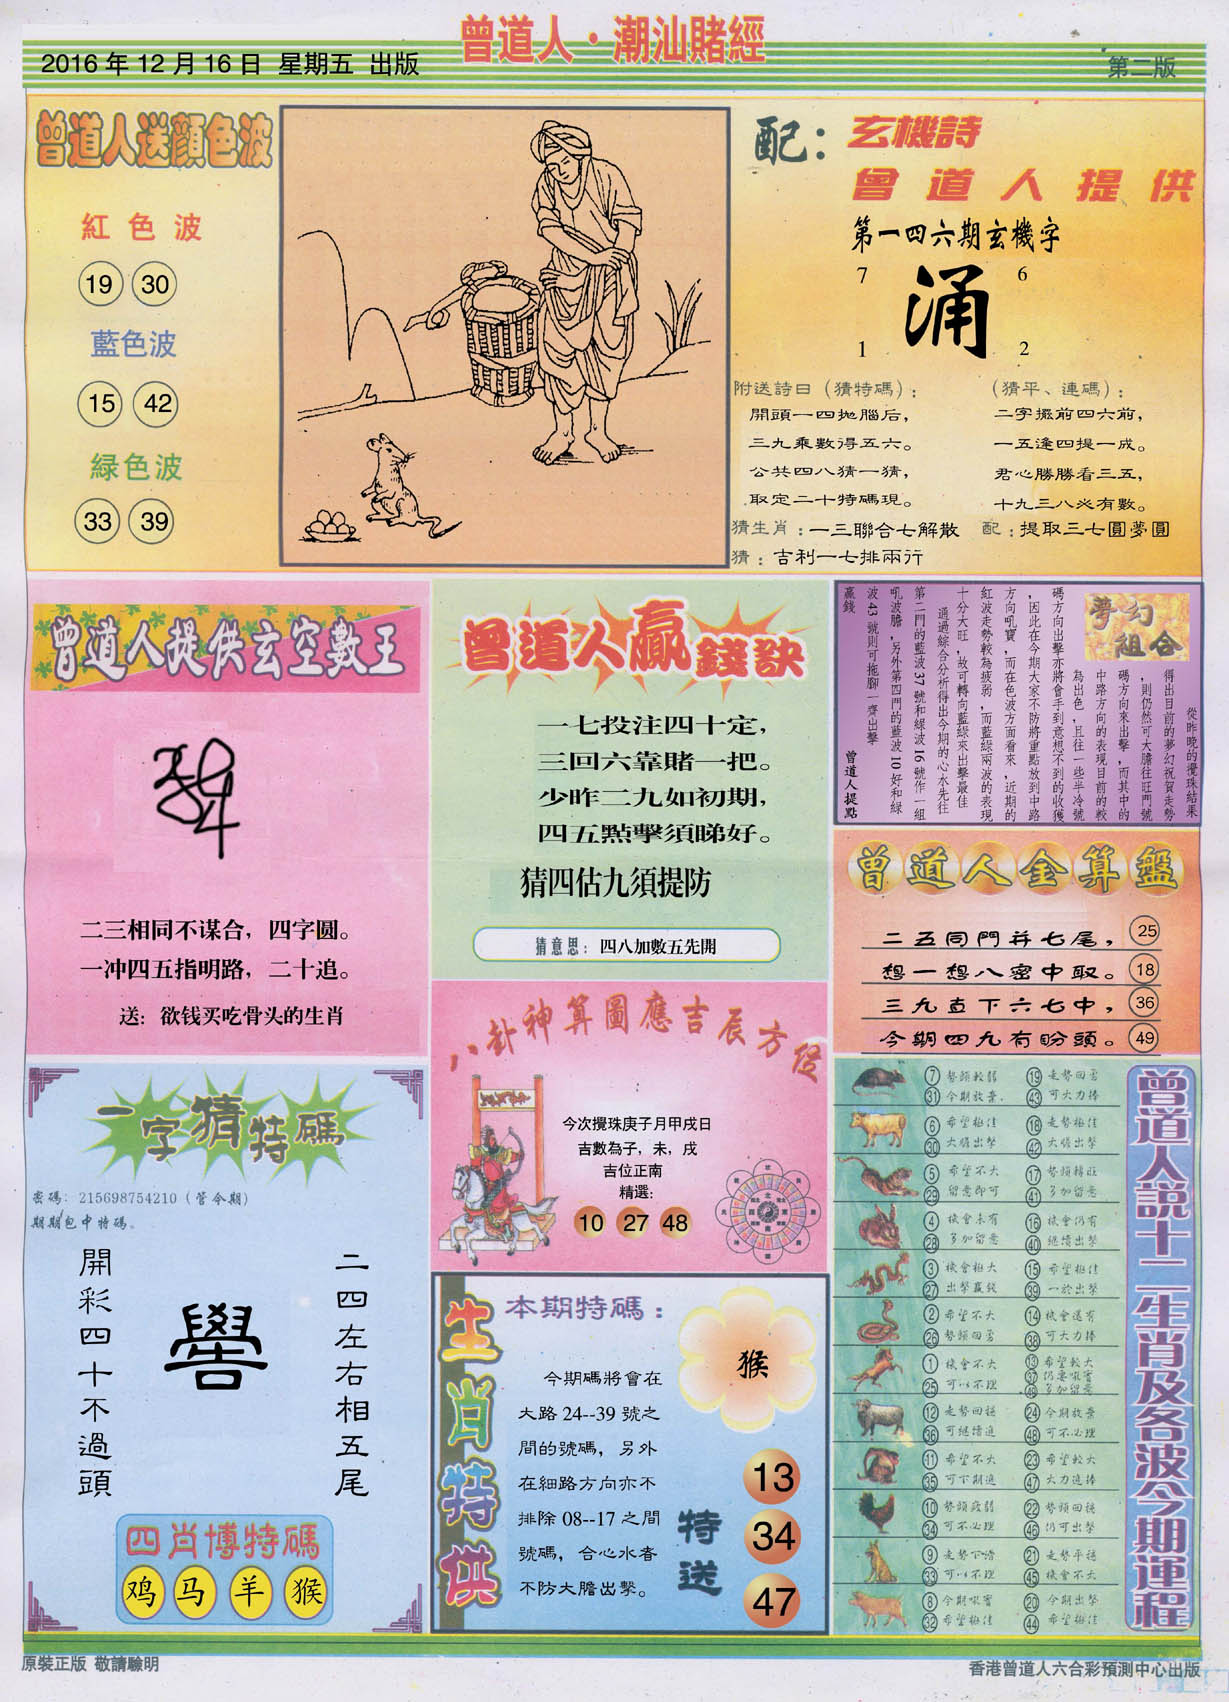 曾道人·潮汕賭經
2016年12月16日 星期五 出版
第二版
曾道人送顏色波
紅色波
19 30
藍色波
15 42
緑色波
33 39
配：玄機詩
曾道人提供
第一四六期玄機字
7 6
涌
1 2
附送詩曰（猜特碼）：
開頭一四拋腦后，
三九乘數得五六。
公共四八猜一猜，
取定二十特碼現。
（猜平、連碼）：
二字攞前四六前，
一五逢四提一成。
君心勝勝看三五，
十九三八必有數。
猜生肖：一三聯合七解散
配：提取三七圓夢圓
猜：吉利一七排兩行
曾道人提供玄空數王
二三相同不谋合，四字圆。
一冲四五指明路，二十追。
送：欲钱买吃骨头的生肖
曾道人贏錢訣
一七投注四十定，
三回六靠賭一把。
少昨二九如初期，
四五點擊須睇好。
猜四估九須提防
猜意思：四八加數五先開
夢幻組合
從昨晚的攪珠結果
得出目前的夢幻祝賀走勢
，則仍然可大膽往旺門號
碼方向來出擊，而其中的
中路方向的表現目前的較
為出色，且往一些半冷號
碼方向出擊亦將會手到意想不到的收獲
，因此在今期大家不防將重點放到中路
方向吼寶，而在色波方面看來，近期的
紅波走勢較為疲弱，而藍綠兩波的表現
十分大旺，故可轉向藍綠來出擊最佳
通過綜合分析得出今期的心水先往
第二門的藍波37號和綠波16號作一組
吼波膽，另外第四門的藍波10好和綠
波43號則可拖腳一齊出擊
贏錢
曾道人提點
曾道人金算盤
二五同門并七尾， 25
想一想八密中取。 18
三九直下六七中， 36
今期四九有盼頭。 49
八卦神算圖應吉辰方位
今次攪珠庚子月甲戌日
吉數為子，未，戌
吉位正南
精選：
10 27 48
一字猜特碼
密碼：215698754210（管令期）
期期包中特碼。
二四左右相五尾
譽
開彩四十不過頭
四肖博特碼
鸡 马 羊 猴
生肖特供
本期特碼：
猴
今期碼將會在
大路24--39號之
間的號碼，另外
在細路方向亦不
排除08--17之間
號碼，合心水者
不防大膽出擊。
特送
13
34
47
曾道人説十二生肖及各波今期運程
7 勢頭較弱 19 走勢回勇
31 今期放棄. 43 可大力捧
6 希望極佳 18 走勢極佳
30 大膽出擊 42 大膽出擊
5 希望不大 17 勢頭轉旺
29 留意即可 41 多加留意
4 機會未有 16 機會仍有
28 多加留意 40 繼續出擊
3 機會極大 15 希望極佳
27 出擊贏錢 39 一於出擊
2 希望不大 14 機會還有
26 勢頭回勇 38 可大力捧
1 機會不大 13 希望較大
25 可以不理 37 仍要吸實
49 多加留意
12 走勢回穩 24 今期放棄
36 可繼續追 48 可不必理
11 希望不大 23 希望較大
35 可下期追 47 大力追捧
10 勢頭疲弱 22 勢頭回穩
34 可不必理 46 仍可出擊
9 走勢下滑 21 走勢平穩
33 可以不理 45 機會不大
8 今期吸實 20 今期出擊
32 希望極佳 44 希望極佳
原裝正版 敬請驗明
香港曾道人六合彩預測中心出版